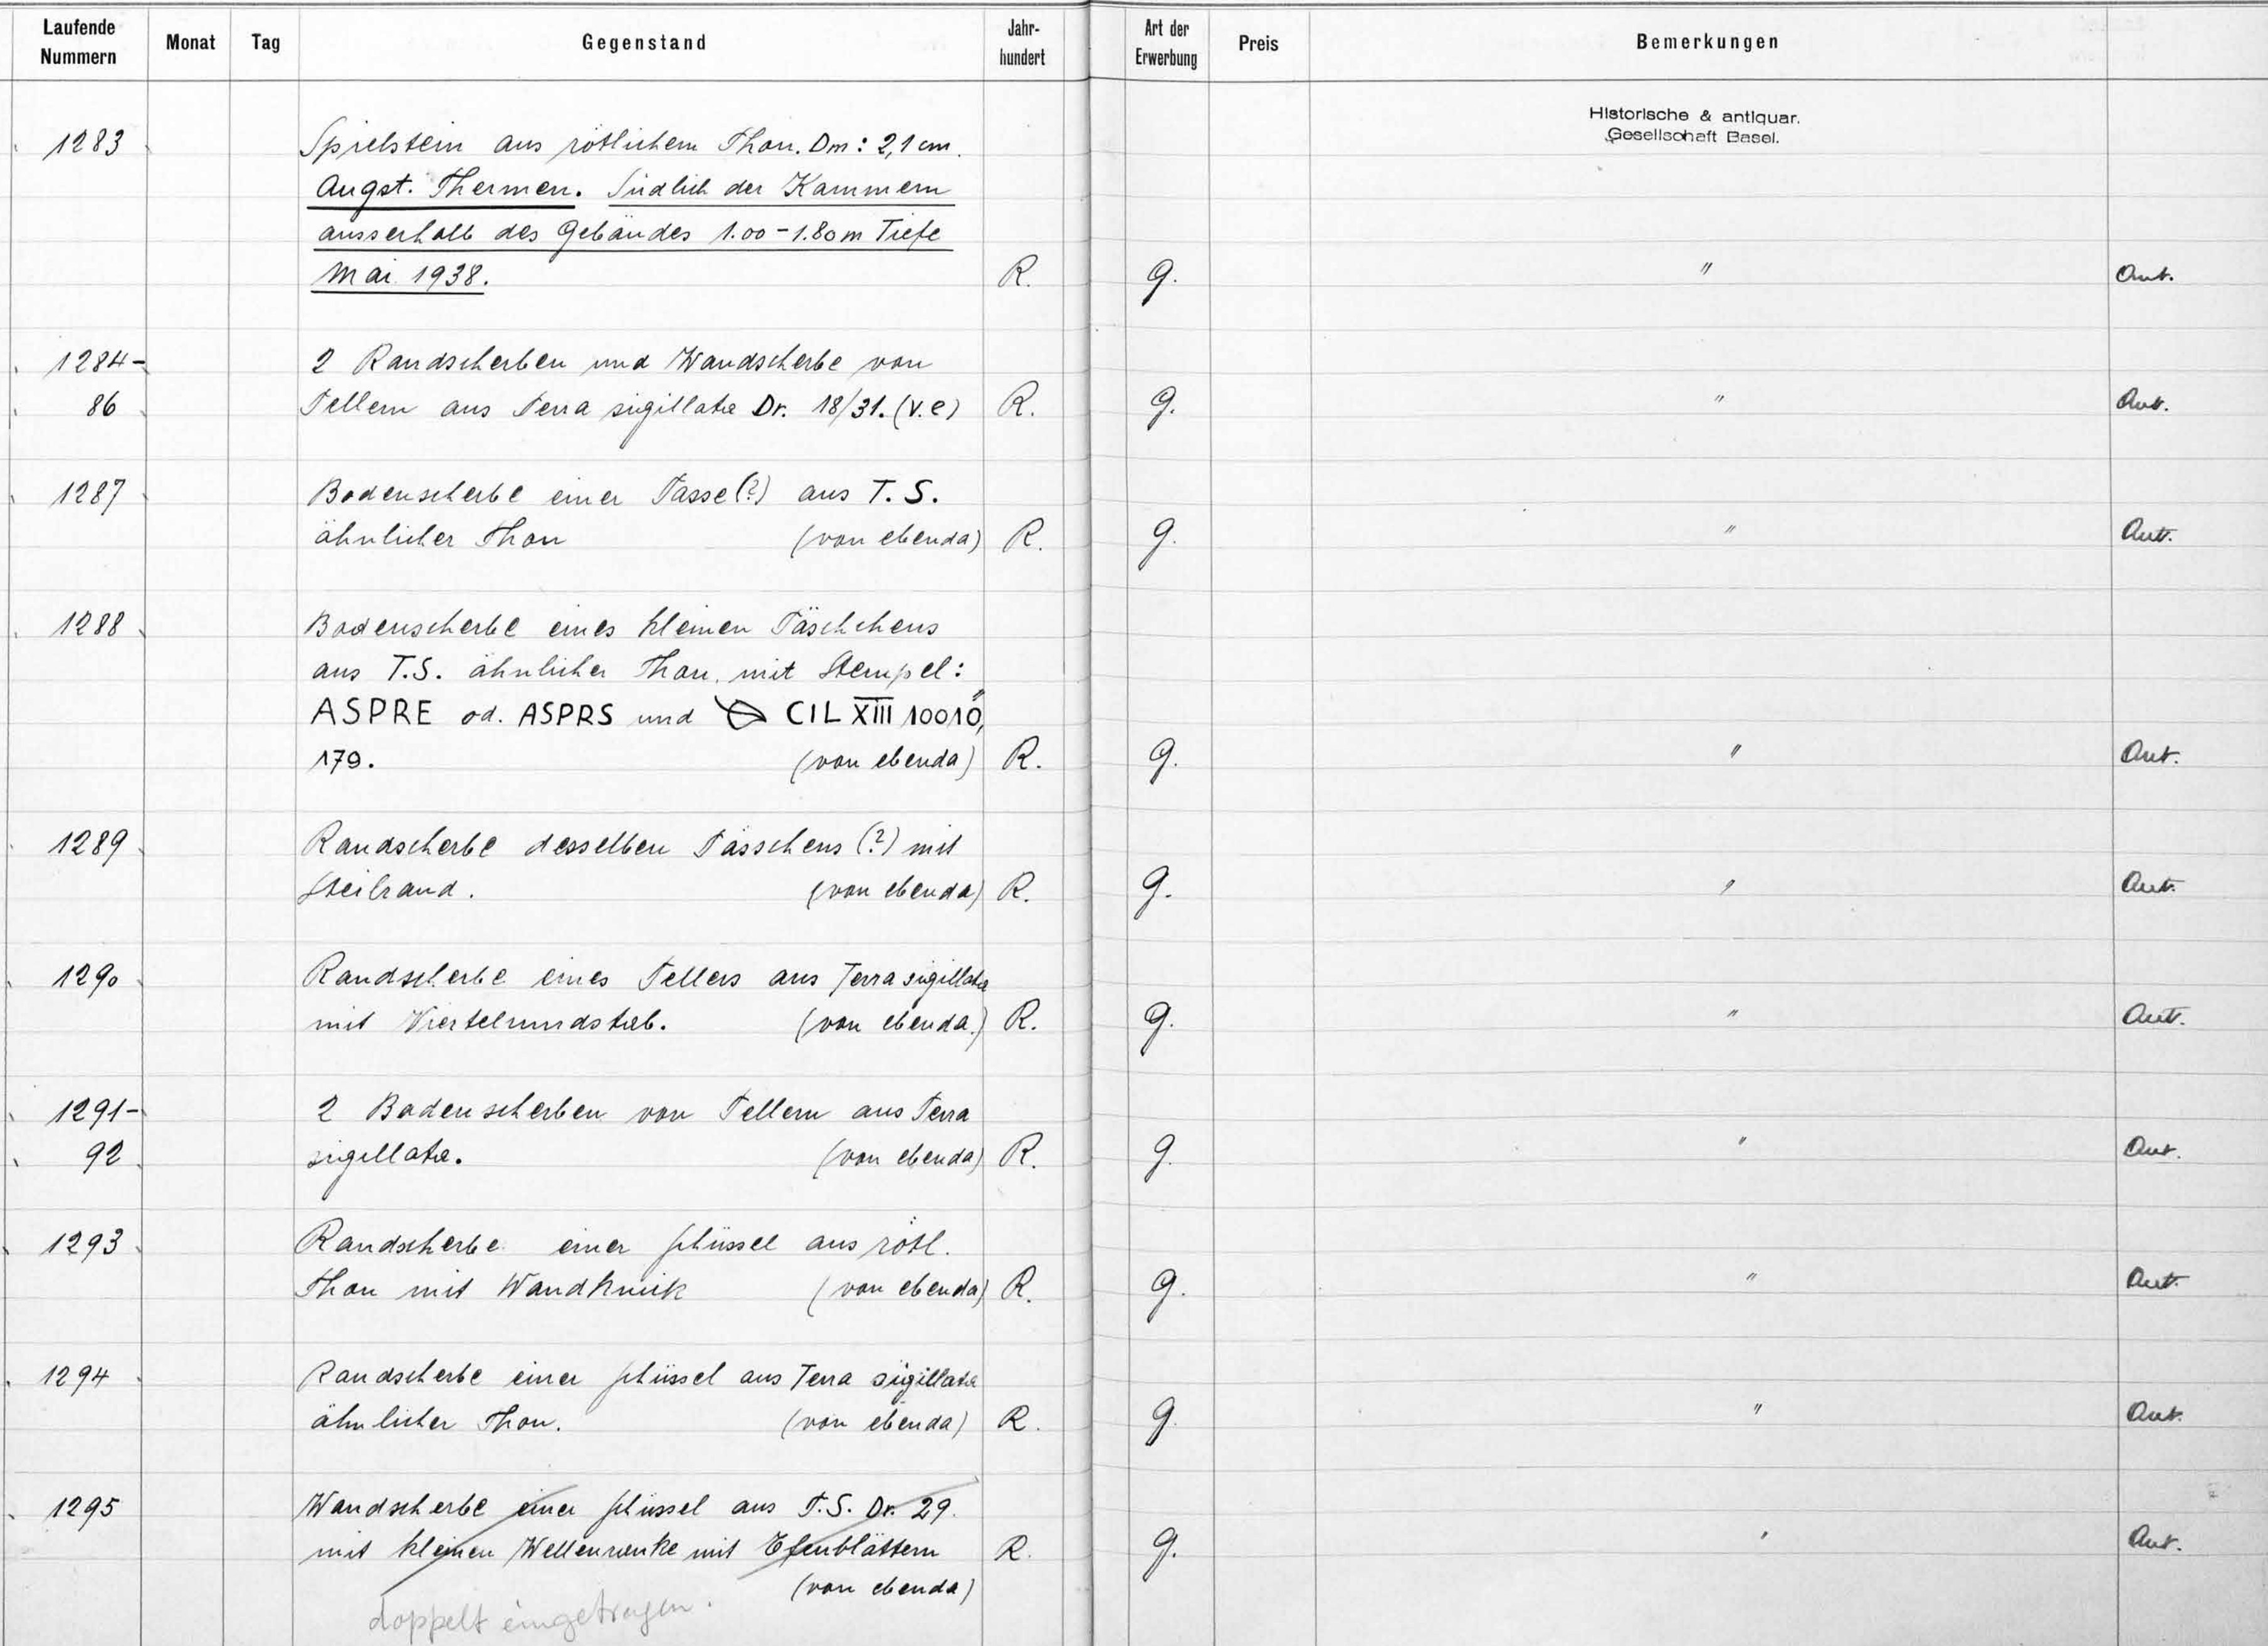 Laufende Nummern Monat Tag Gegenstand Jahr-hundert Art der Erwerbung Preis Bemerkungen
Historische & antiquar.
Gesellschaft Basel.
1283 Spielstein aus rötlichem Thon. Dm: 2,1 cm.
Augst. Thermen. Südlich der Kammern
ausserhalb des Gebäudes 1.00 - 1.80 m Tiefe
Mai 1938. R. g. " Ant.
1284- 2 Randscherben und Wandscherbe von
86 Tellern aus Terra sigillata Dr. 18/31. (v. e) R. g. " Ant.
1287 Bodenscherbe einer Tasse (?) aus T. S.
ähnlicher Thon (von ebenda) R. g. " Ant.
1288 Bodenscherbe eines kleinen Täschchens
aus T.S. ähnlicher Thon, mit Stempel:
ASPRE od. ASPRS und CIL XIII 10010,"
179. (von ebenda) R. g. " Ant.
1289 Randscherbe desselben Tässchens (?) mit
Steilrand. (von ebenda) R. g. " Ant.
1290 Randscherbe eines Tellers aus Terra sigillata
mit Viertelrundstab. (von ebenda.) R. g. " Ant.
1291- 2 Bodenscherben von Tellern aus Terra
92 sigillata. (von ebenda) R. g. " Ant.
1293 Randscherbe einer Schüssel aus rötl.
Thon mit Wandknick (von ebenda) R. g. " Ant.
1294 Randscherbe einer Schüssel aus Terra sigillata
ähnlicher Thon. (von ebenda) R. g. " Ant.
1295 Wandscherbe einer Schüssel aus T.S. Dr. 29.
mit kleinen Wellenranke mit Efeublättern R. g. " Ant.
(von ebenda)
doppelt eingetragen.